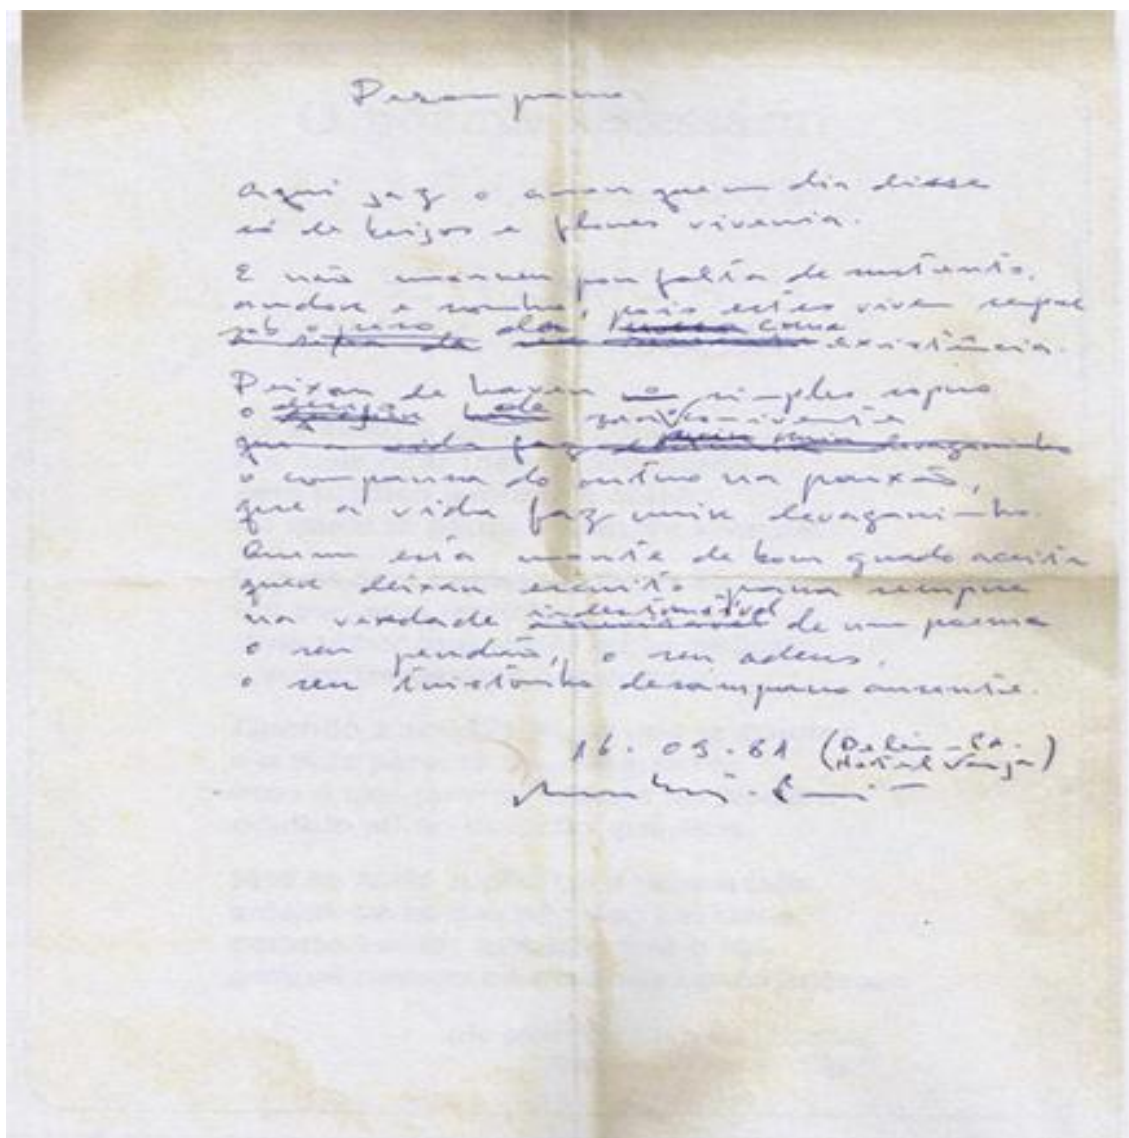 Desamparo
Aqui jaz o amor que um dia disse
só de beijos e flores viveria.
E não morreu por falta de sustento,
ardor e sonho, pois estes vivem sempre
sob o peso da coma existência.
Deixou de haver o simples sopro
o
que a vida faz devagarinho
o comparsa do outro na paixão,
que a vida faz unir devagarinho.
Quem esta morte de bom grado aceita
quer deixar escrito para sempre
na verdade indestrutível de um poema
o seu perdão, o seu adeus,
o seu tristonho desamparo ausente.
16.09.81 (Belém - PA.
Hotel Vanja)